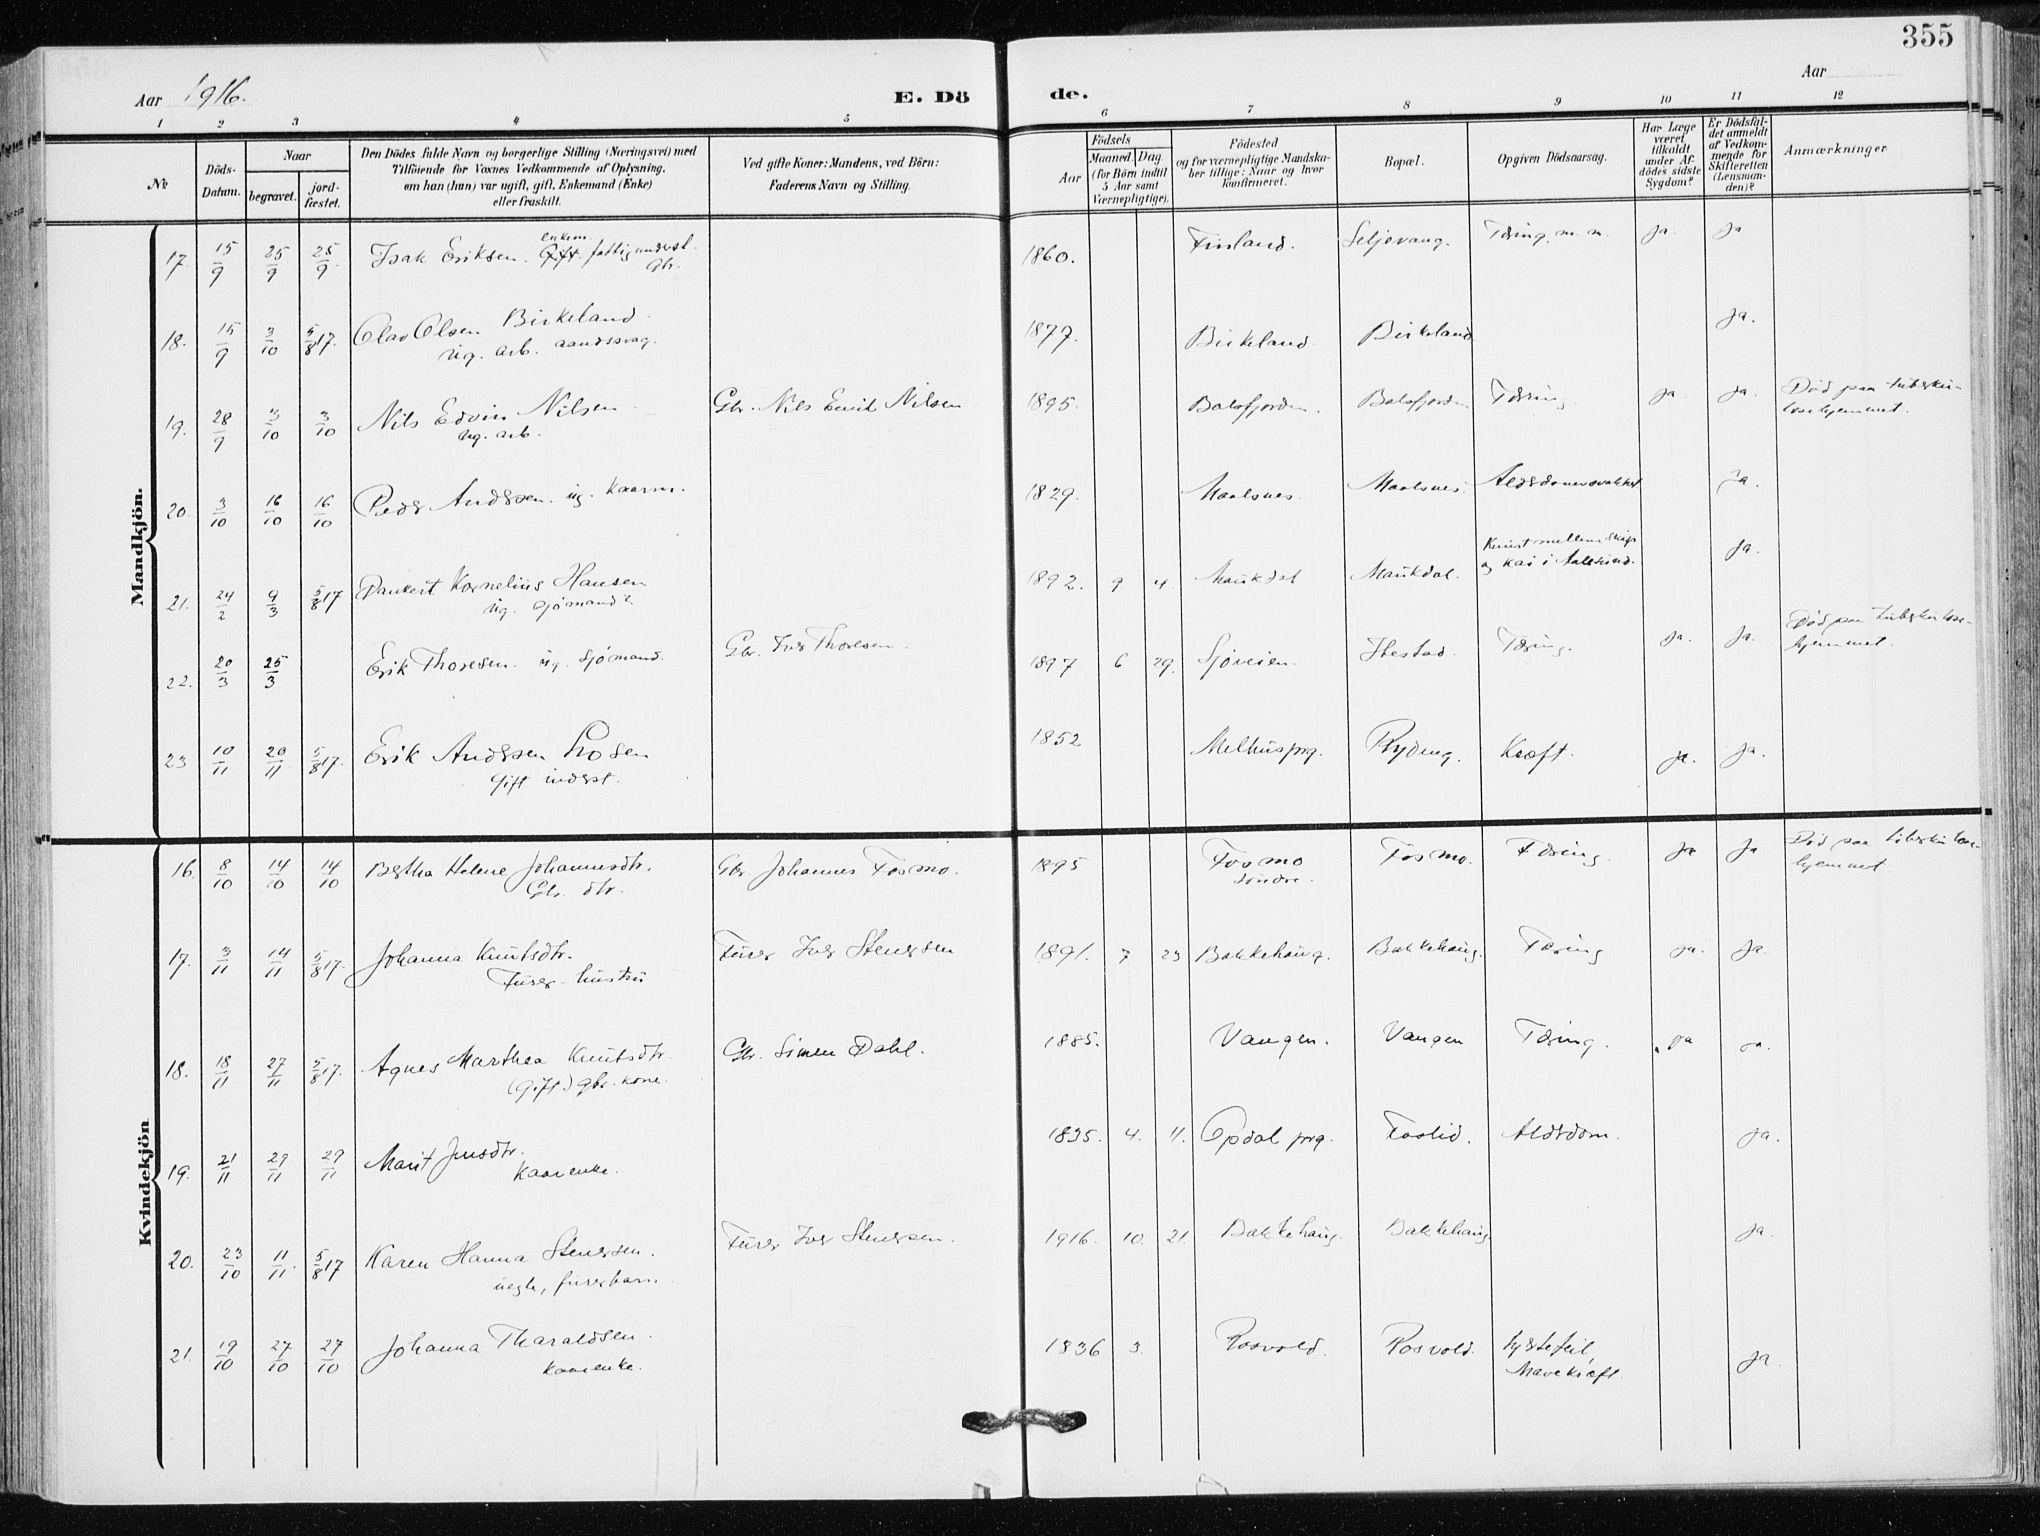 355
Aar 1916.
E. Dö
de.
Aar
1 2 3 4 5 6 7 8 9 10 11 12
№
Döds-
Datum.
Naar
begravet.
jord-
fæstet.
Den Dödes fulde Navn og borgerlige Stilling (Næringsvei) med
Tilföiende for Voxnes Vedkommende af Oplysning,
om han (hun) var ugift, gift, Enkemand (Enke)
eller fraskilt.
Ved gifte Koner: Mandens, ved Börn:
Faderens Navn og Stilling.
Födsels
Aar
Maaned. Dag.
(for Börn indtil
5 Aar samt
Værnepligtige).
Födested
og for værnepligtige Mandska-
ber tillige: Naar og hvor
konfirmeret.
Bopæl.
Opgiven Dödsaarsag.
Har Læge
været
tilkaldt
under Af-
dödes sidste
Sygdom?
Er Dödsfal-
det anmeldt
af Vedkom-
mende for
Skifteretten
(Lensman-
den)?
Anmærkninger.
Mandkjön.
17. 15/9 25/9 25/9 Isak Eriksen. Gift. enkem. fattigunderst. Gbr. 1860. Finland. Seljevang. Tæring m. m. ja. ja
18. 15/9 3/10 5/8 17. Olav Olsen Birkeland. 1877. Birkeland. Birkeland ja.
ug. arb. aandssvag.
19. 28/9 3/10 3/10 Nils Edvin Nilsen Gbr. Nils Emil Nilsen 1895. Balsfjorden. Balsfjorden Tæring ja ja. Död paa tuberku-
ug. arb. losehjemmet.
20. 3/10 16/10 16/10 Peder Andersen. ug. kaarm. 1829. Maalsnes. Maalsnes. Alderdomssvakhet ja.
21. 24/2 9/3 5/8 17 Dankert Kornelius Hansen 1892. 9. 4. Maukdal Maukdal. Knust mellem skip
ug. sjömand og kai i Aalesund. ja.
22. 20/3 25/3 Erik Thoresen. ug. sjömand. Gbr. Iver Thoresen. 1897 6 29. Sjöveien. Ibestad. Tæring. ja. ja. Död paa tuberkulose-
hjemmet.
23 10/11 20/11 5/8 17. Erik Andersen Losen 1852 Melhus prg. Rydeng. Kræft. ja. ja.
Gift inderst.
Kvindekjön
16. 8/10 14/10 14/10 Bertha Helene Johannesdtr. Gbr. Johannes Fosmo. 1895 Fosmo Fosmo. Tæring. ja ja Död paa tuberkulose-
Gbr. dtr. söndre. hjemmet
17. 3/11 14/11 5/8 17. Johanna Knutsdtr. Furer Iver Stenersen 1891. 7 23 Bakkehaug. Bakkehaug. Tæring ja. ja.
Furer-hustru
18. 18/11 27/11 5/8 17. Agnes Marthea Knutsdtr. Gbr. Simen Dahl. 1885. Vangen. Vangen Tæring. ja ja.
(gift) gbr. kone.
19. 21/11 29/11 29/11 Marit Jensdtr. 1835. 4. 11. Opdal prg. Foslid. Alderdom. ja.
Kaarenke.
20. 23/10 11/11. 5/8 17 Karen Hanna Stenersen. Furer Iver Stenersen. 1916. 10. 21. Bakkehaug. Bakkehaug ja.
uegte, furerbarn.
21. 19/10 27/10 27/10 Johanna Tharaldsen. 1836 3. Rosvold. Rosvold. hjertefeil
Kaarenke. Mavekræft. ja.